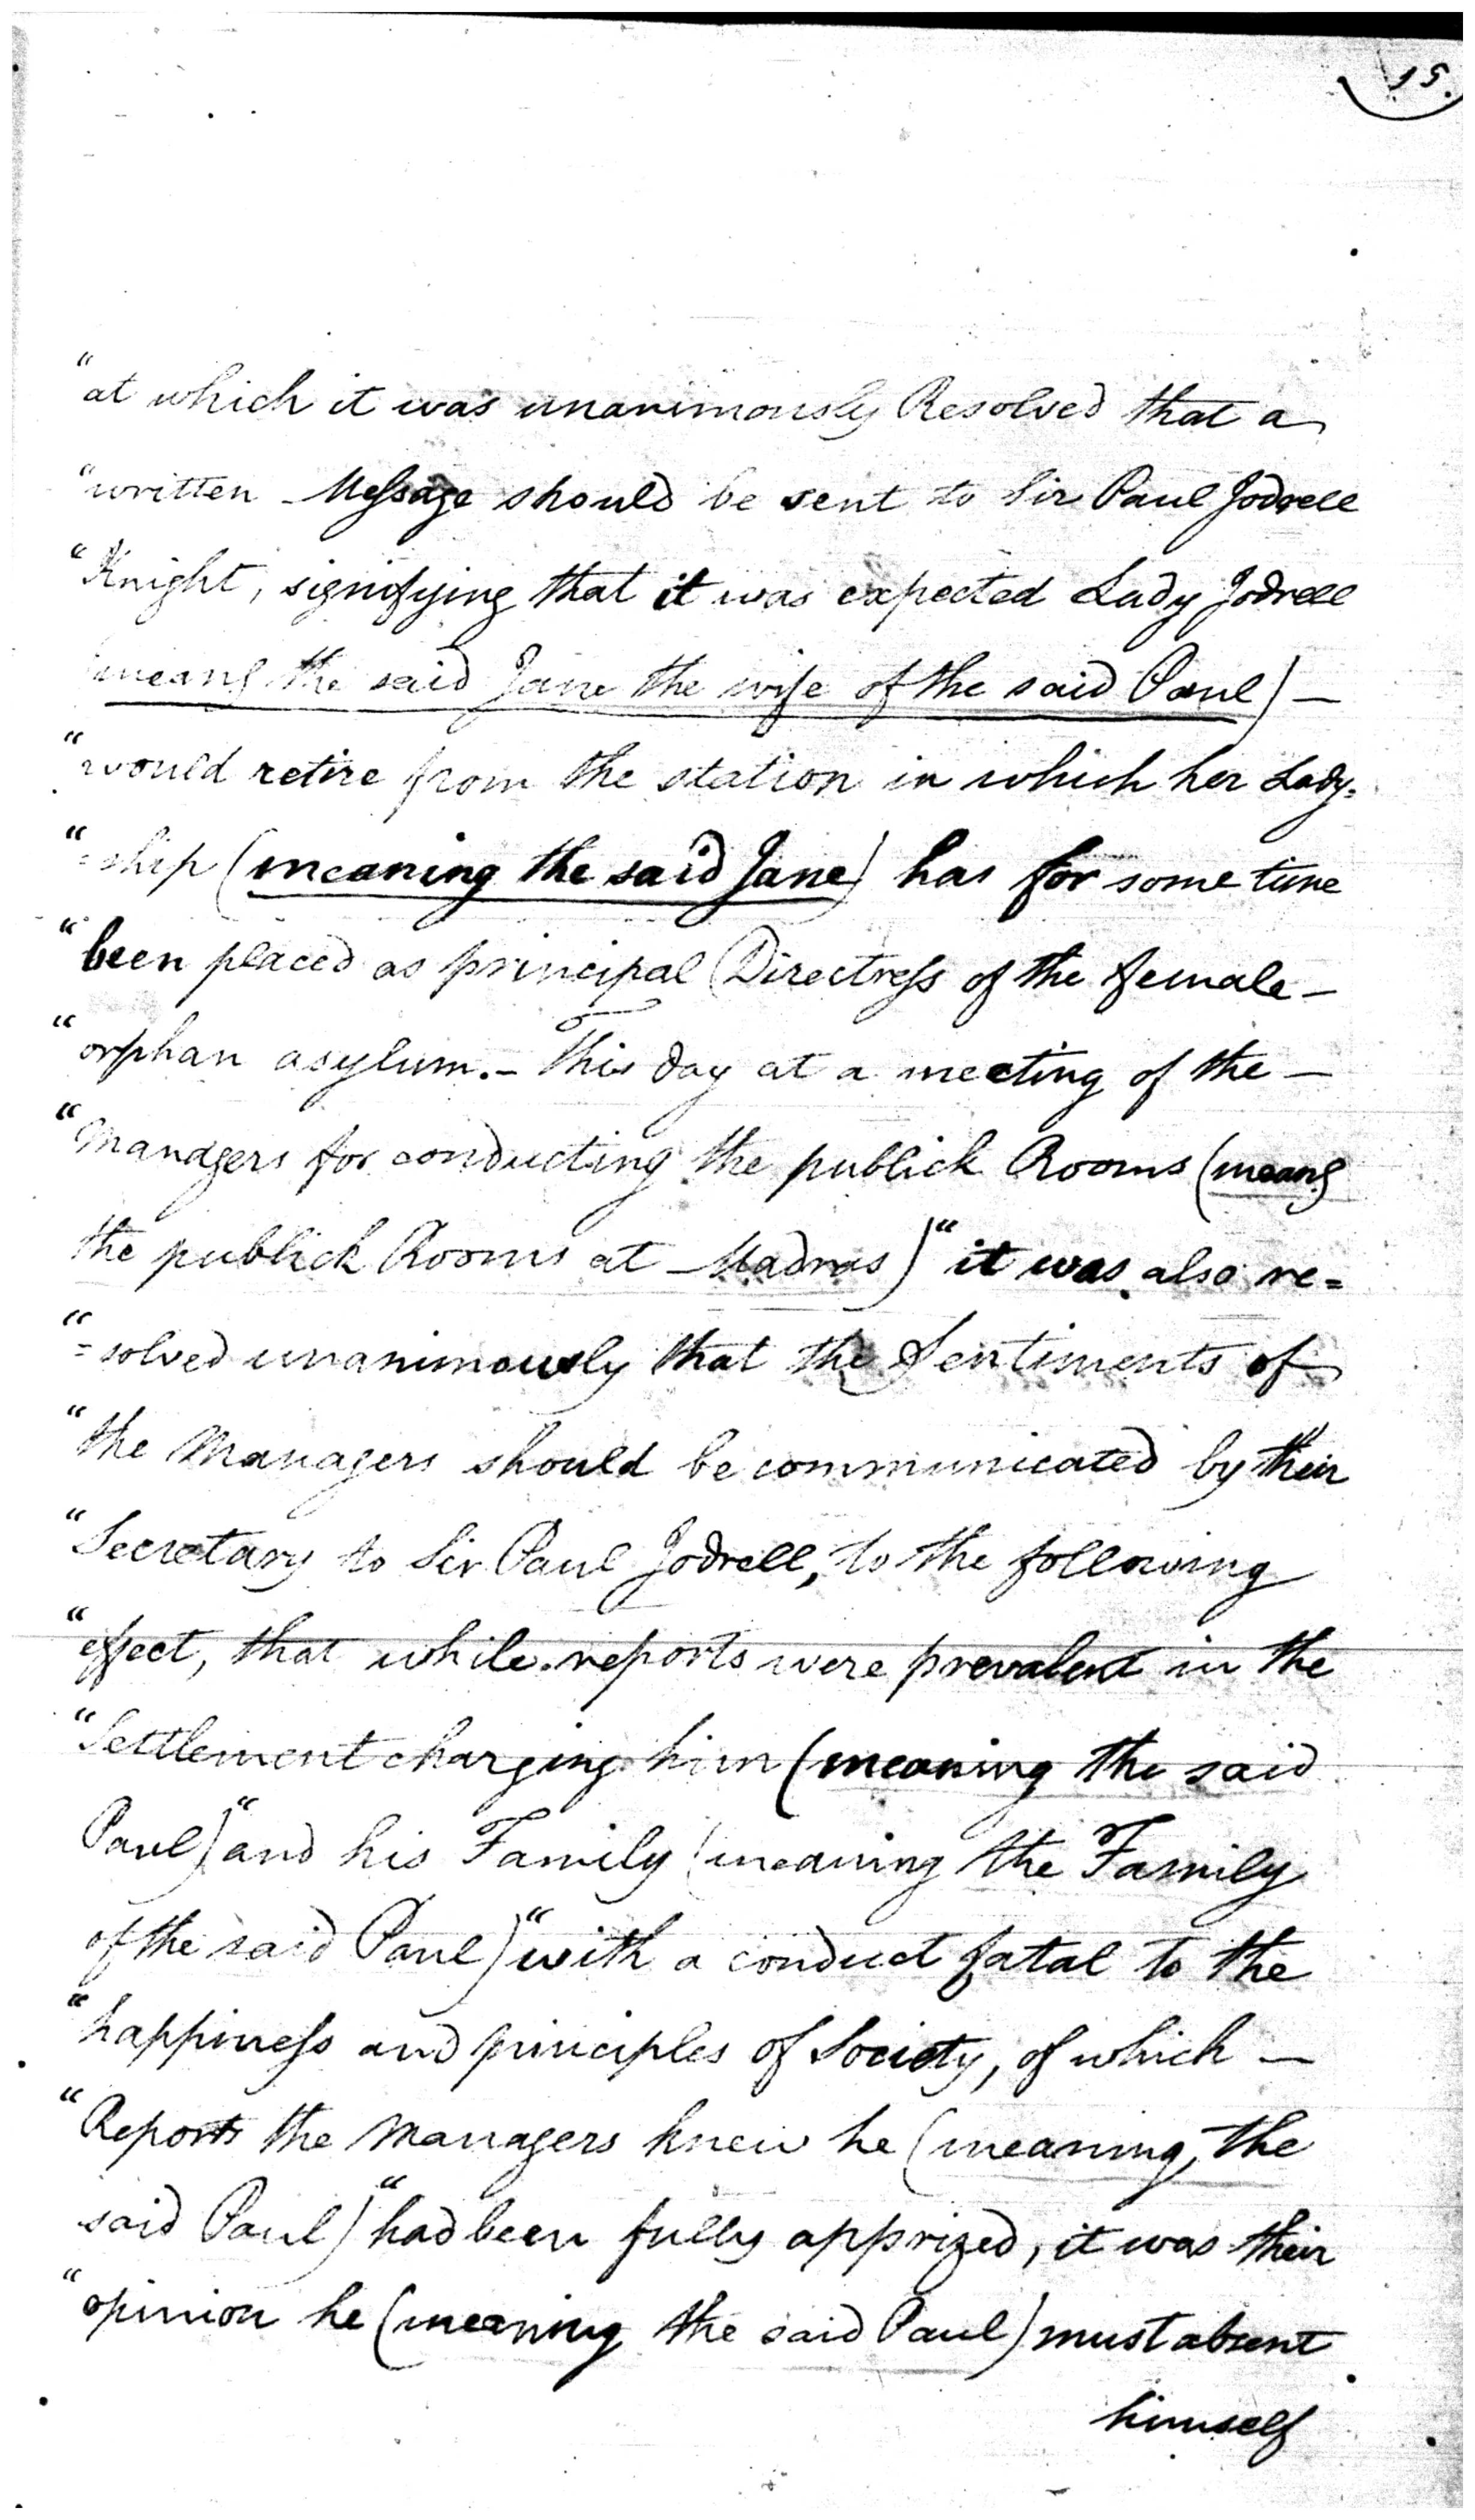 15.
"at which it was unanimously Resolved that a
"written Meſsage should be sent to Sir Paul Jodrell
"Knight, signifying that it was expected Lady Jodrell
(meang the said Jane the wife of the said Paul) —
"would retire from the station in which her Lady=
"=ship (meaning the said Jane) has for some time
"been placed as principal Directreſs of the female —
"orphan asylum. — This day at a meeting of the —
"Managers for conducting the publick Rooms (meang
the publick Rooms at Madras) "it was also re=
"=solved unanimously that the Sentiments of
"the Managers should be communicated by their
"Secretary to Sir Paul Jodrell, to the following
"effect, that while reports were prevalent in the
"Settlement charging him (meaning the said
Paul) "and his Family (meaning the Family
of the said Paul) "with a conduct fatal to the
"happineſs and principles of Society, of which —
"Reports the Managers knew he (meaning the
said Paul) "had been fully apprized, it was their
"opinion he (meaning the said Paul) must absent
himself